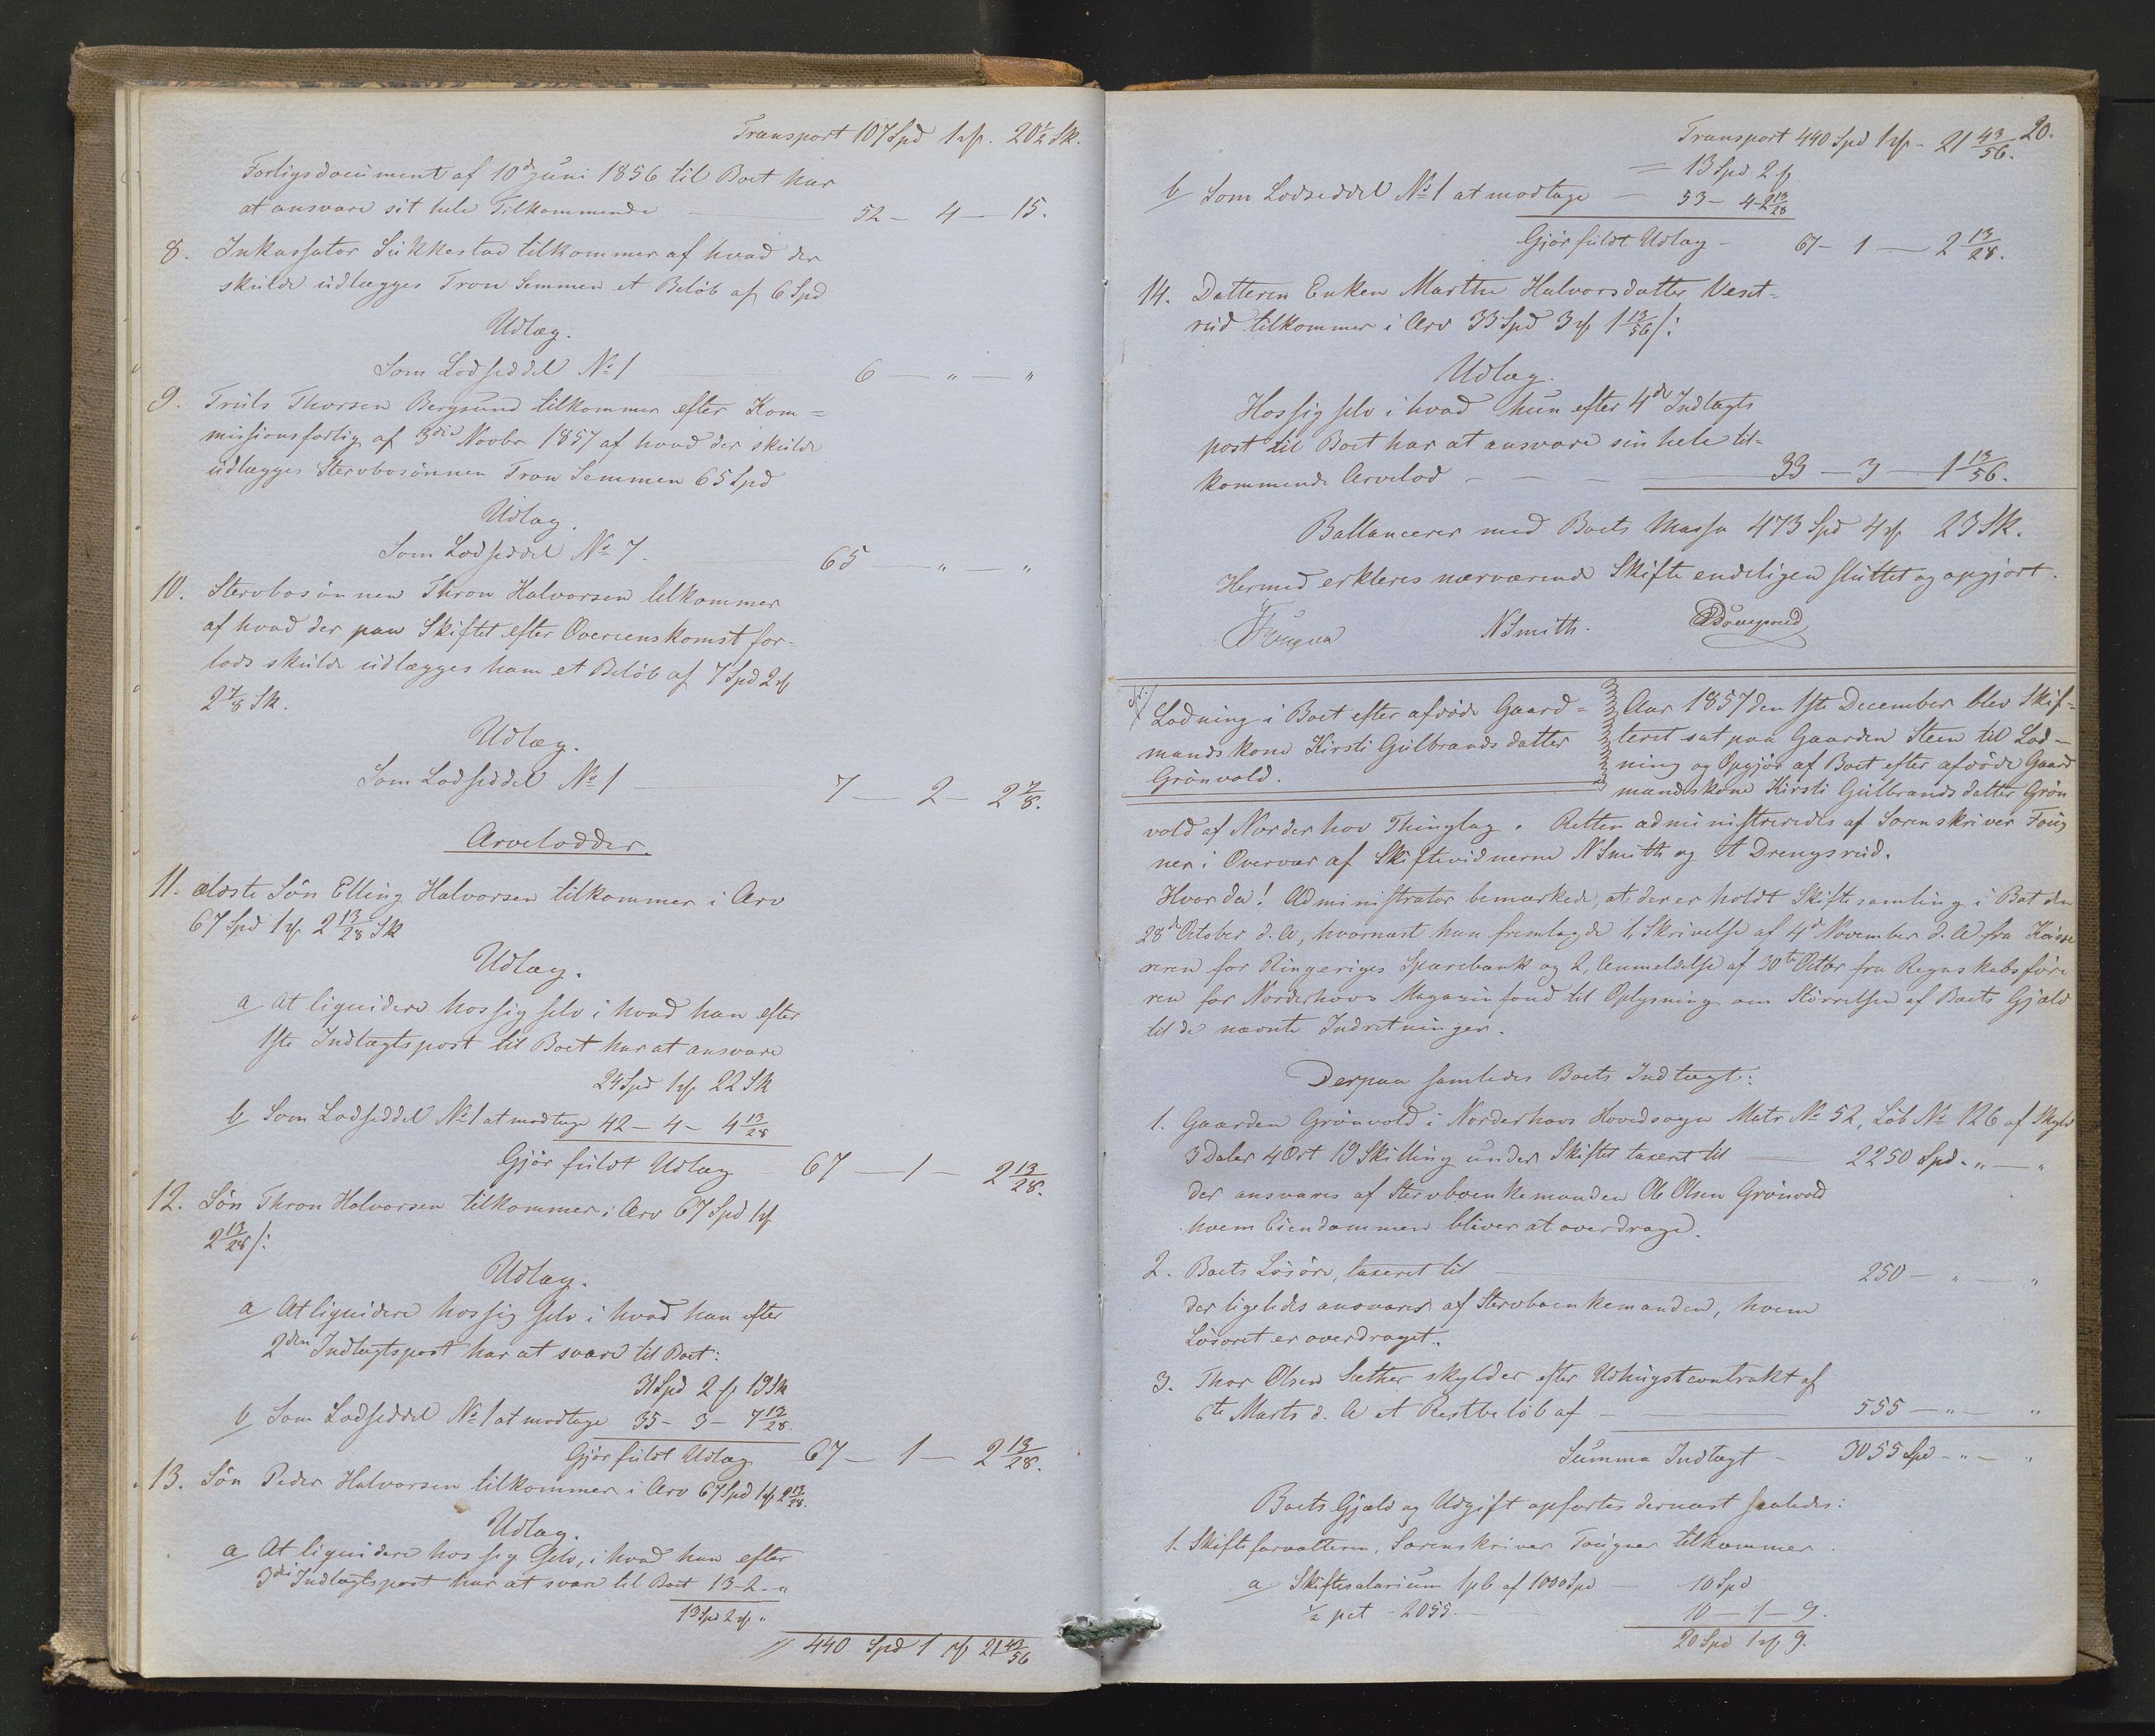 Transport 107 Spd 1 ↄ 20½ Sk.
Forligsdocument af 10d Juni 1856 til Boet har
at ansvare sit hele Tilkommende 52 - 4 - 15.
8. Inkassator Sukkestad tilkommer af hvad der
skulde udlægges Tron Semmen et Beløb af 6 Spd
Udlæg.
Som Lodseddel No 1 6 - „ - „
9. Truls Thorsen Bergsund tilkommer efter Kom=
missionsforlig af 3die Novbr 1857 af hvad der skulde
udlægges Stervbosønnen Tron Semmen 65 Spd
Udlæg.
Som Lodseddel No 7. 65 - „ - „
10. Stervbosønnen Thron Halvorsen tilkommer
af hvad der paa Skiftet efter Overeenskomst for-
lods skulde udlægges ham et Beløb af 7 Spd 2 ↄ
2 7/8 Sk.
Udlæg.
Som Lodseddel No 1 7 - 2 - 2 7/8.
Arvelodder.
11. ældste Søn Elling Halvorsen tilkommer i Arv
67 Spd 1 ↄ 2 13/28 Sk
Udlæg.
a At liquidere hos sig selv i hvad han efter
1ste Indtægtspost til Boet har at ansvare
24 Spd 1 ↄ 22 Sk
b Som Lodseddel No 1 at modtage 42 - 4 - 4 13/28
Gjør fuldt Udlæg 67 - 1 - 2 13/28.
12. Søn Thron Halvorsen tilkommer i Arv 67 Spd 1 ↄ
2 13/28 /:
Udlæg.
a At liquidere hos sig selv i hvad han efter
2den Indtægtspost har at svare til Boet:
31 Spd 2 ↄ 19 Sk
b Som Lodseddel No 1 at modtage 35 - 3 - 7 13/28.
Gjør fuldt Udlæg 67 - 1 - 2 13/28.
13. Søn Peder Halvorsen tilkommer i Arv 67 Spd 1 ↄ 2 13/28.
Udlæg.
a At liquidere hos sig selv, i hvad han efter
3die Indtægtspost har at svare til Boet 13 - 2 - „
13 Spd 2 ↄ „
440 Spd 1 ↄ 21 43/56
20.
Transport 440 Spd 1 ↄ - 21 43/56.
= 13 Spd 2 ↄ
b Som Lodseddel No 1 at modtage - 53 - 4 - 2 13/28
Gjør fuldt Udlæg - 67 - 1 - 2 13/28.
14. Datteren Enken Marthe Halvorsdatter Veset=
rud tilkommer i Arv 33 Spd 3 ↄ 1 13/56 /:
Udlæg.
Hos sig selv i hvad hun efter 4de Indtægts
post til Boet har at ansvare sin hele til=
kommende Arvelod - - - 33 - 3 - 1 13/56.
Ballancerer med Boets Massa 473 Spd 4 ↄ 23 Sk.
Hermed erkleres nærværende Skifte endeligen sluttet og opgjort.
Fougner N Smith. A Drengsrud
Lodning i Boet efter afdøde Gaard=
mandskone Kirsti Gulbrandsdatter
Grønvold.
Aar 1857 den 1ste December blev Skif=
teret sat paa Gaarden Steen til Lod-
ning og Opgjør af Boet efter afdøde Gaard
mandskone Kirsti Gulbrandsdatter Grøn
vold af Norderhov Thinglag. Retten administreredes af Sorenskriver Foug
ner i Overvær af Skiftevidnerne N Smith og A Drengsrud.
Hvor da! Administrator bemærkede, at der er holdt Skiftesamling i Boet den
28d October d. A, hvornæst han fremlagde 1, Skrivelse af 4d November d. A fra Kasse
reren for Ringeriges Sparebank og 2, Anmeldelse af 30te Octbr fra Regnskabsføre
ren for Norderhovs Magazinfond til Oplysning om Størrelsen af Boets Gjæld
til de nævnte Indretninger.
Derpaa samledes Boets Indtægt:
1. Gaarden Grønvold i Norderhovs Hovedsogn Matr No 52, Løb No 126 af Skyld
3 Daler 4 Ort 19 Skilling under Skiftet taxeret til 2250 Spd. „ - „
der ansvares af Stervboenkemanden Ole Olsen Grønvold
hvem Eiendommen bliver at overdrage.
2. Boets Løsøre, taxeret til 250 - „ - „
der ligeledes ansvares af Stervboenkemanden, hvem
Løsøret er overdraget.
3. Thor Olsen Sæther skylder efter Udhugstcontrakt af
6te Marts d. A et Restbeløb af 555 - „ - „
Summa Indtægt - 3055 Spd - „ - „
Boets Gjæld og Udgift opførtes dernæst saaledes:
1. Skifteforvalteren, Sorenskriver Fougner tilkommer
a Skiftesalarium 1 pCt af 1000 Spd - 10 Spd
½ pct - 2055. - 10 - 1 - 9.
20 Spd 1 ↄ 9.